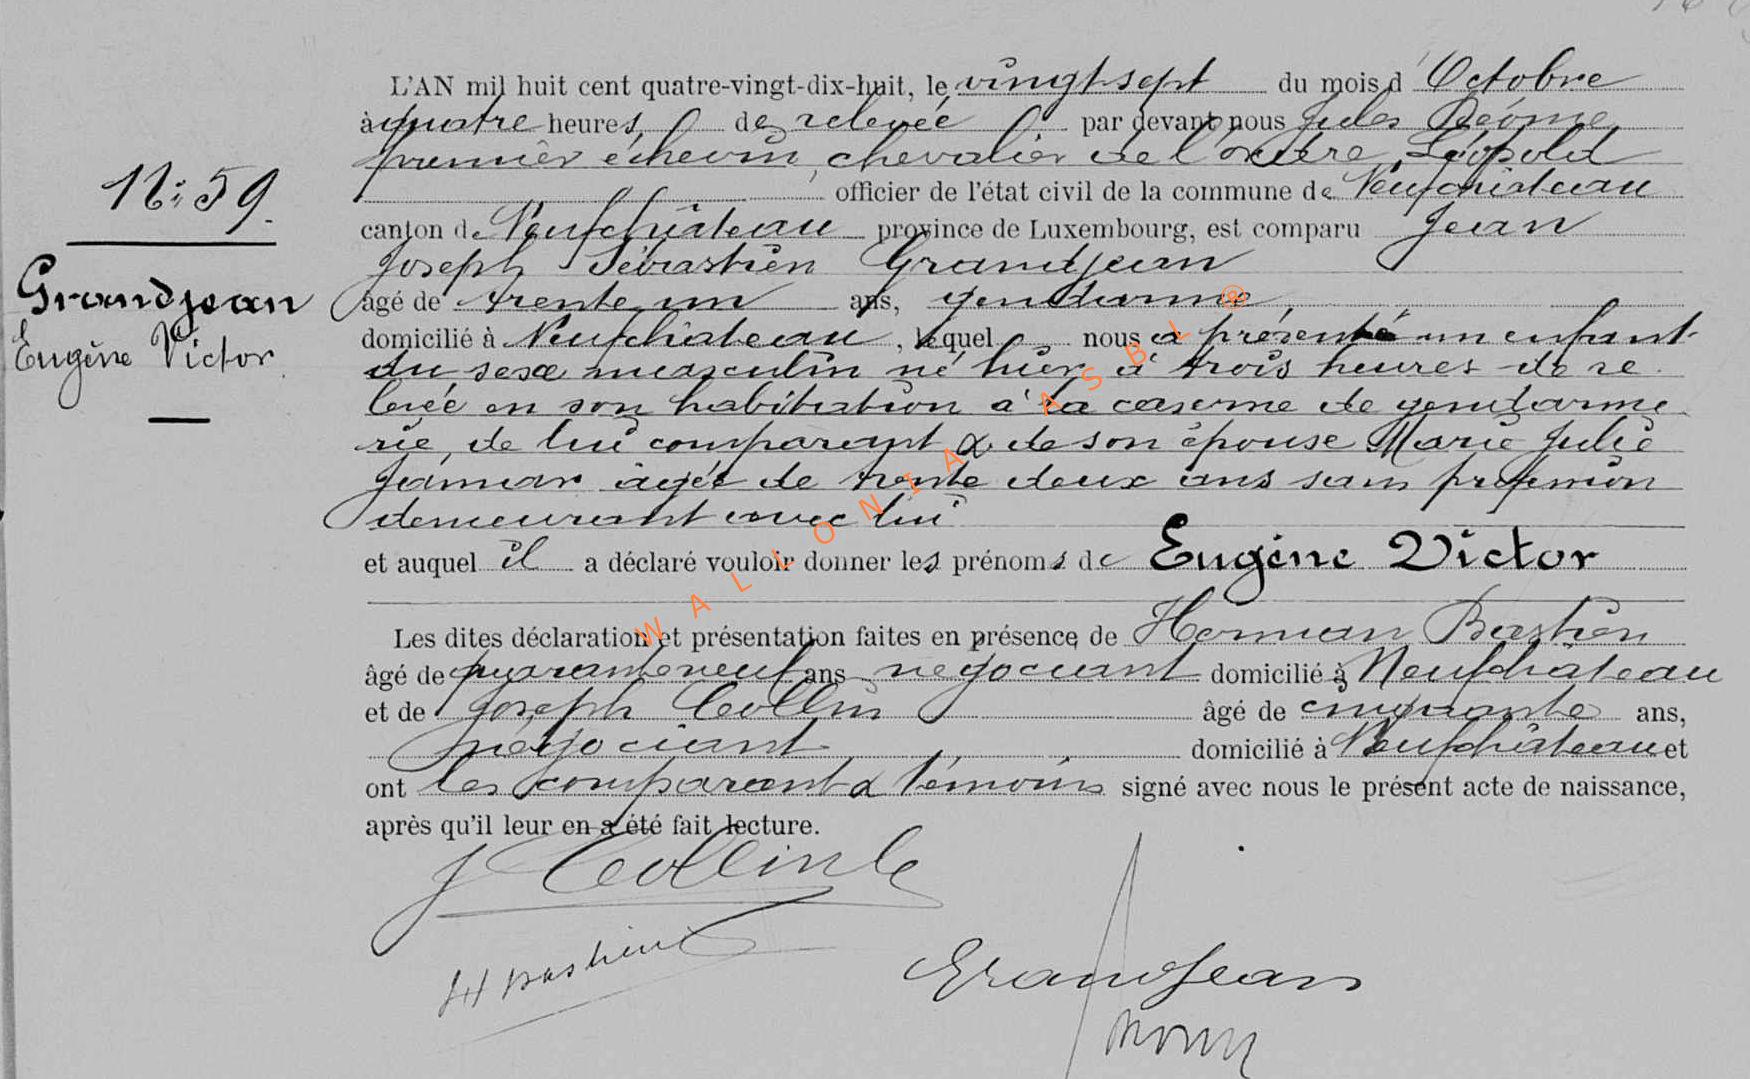 L'AN mil huit cent quatre-vingt-dix-huit, le vingt sept du mois d'Octobre
à quatre heures de relevée par devant nous Jules
premier échevin, chevalier de l'ordre Léopold
officier de l'état civil de la commune de Neufchâteau
N° 59.
canton de Neufchâteau province de Luxembourg, est comparu Jean
Joseph Sébastien Grandjean
Grandjean
âgé de trente un ans, gendarme,
domicilié à Neufchâteau, lequel nous a présenté un enfant
Eugène Victor.
du sexe masculin né hier à trois heures de re
levée en son habitation à la caserne de gendarme
rie, de lui comparant & de son épouse Marie Julie
âgée de trente deux ans sans profession
demeurant avec lui
et auquel il a déclaré vouloir donner les prénoms de Eugène Victor
Les dites déclaration et présentation faites en présence de Herman Bastien
âgé de quarante neuf ans négociant domicilié à Neufchâteau
et de Joseph Collin âgé de cinquante ans,
négociant domicilié à Neufchâteau et
ont les comparant & témoins signé avec nous le présent acte de naissance,
après qu'il leur en a été fait lecture.
J Collin
H Bastien
Grandjean
WALLONIA ASBL ®